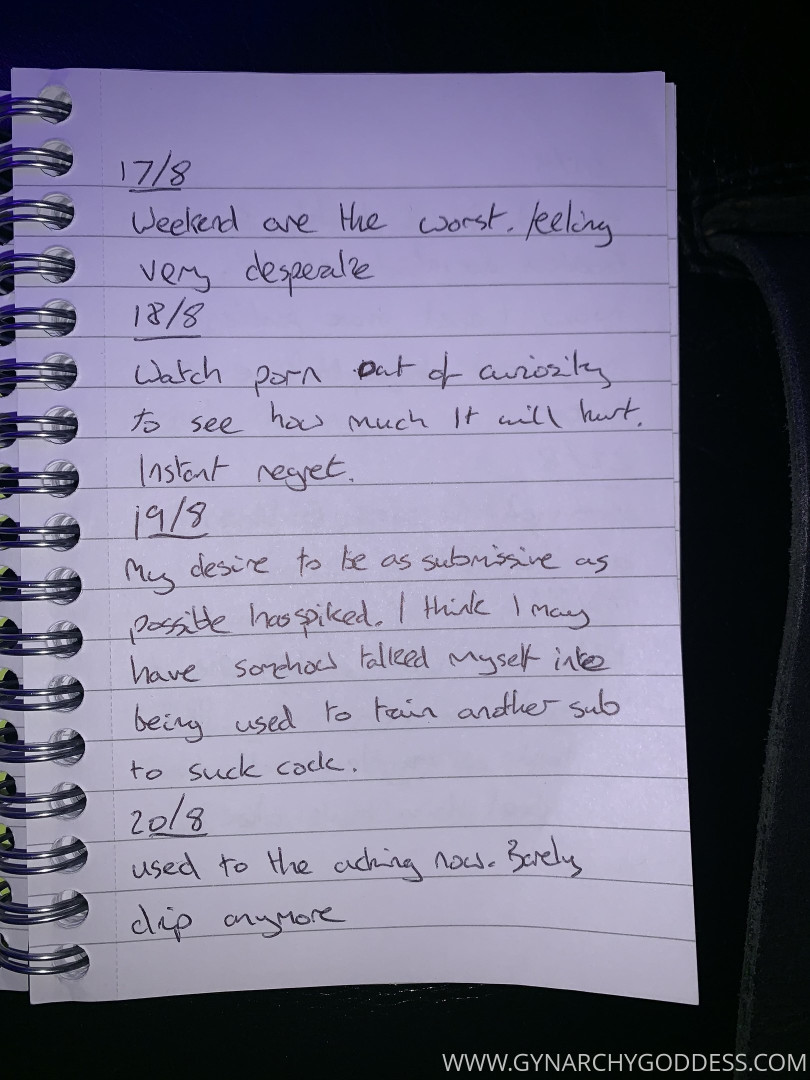 17/8
Weekend are the worst. feeling
very desperate
18/8
Watch porn out of curiosity
to see how much It will hurt.
Instant regret.
19/8
My desire to be as submissive as
possible has spiked. I think I may
have somehow talked myself into
being used to train another sub
to suck cock.
20/8
used to the aching now. Barely
drip anymore
WWW.GYNARCHYGODDESS.COM